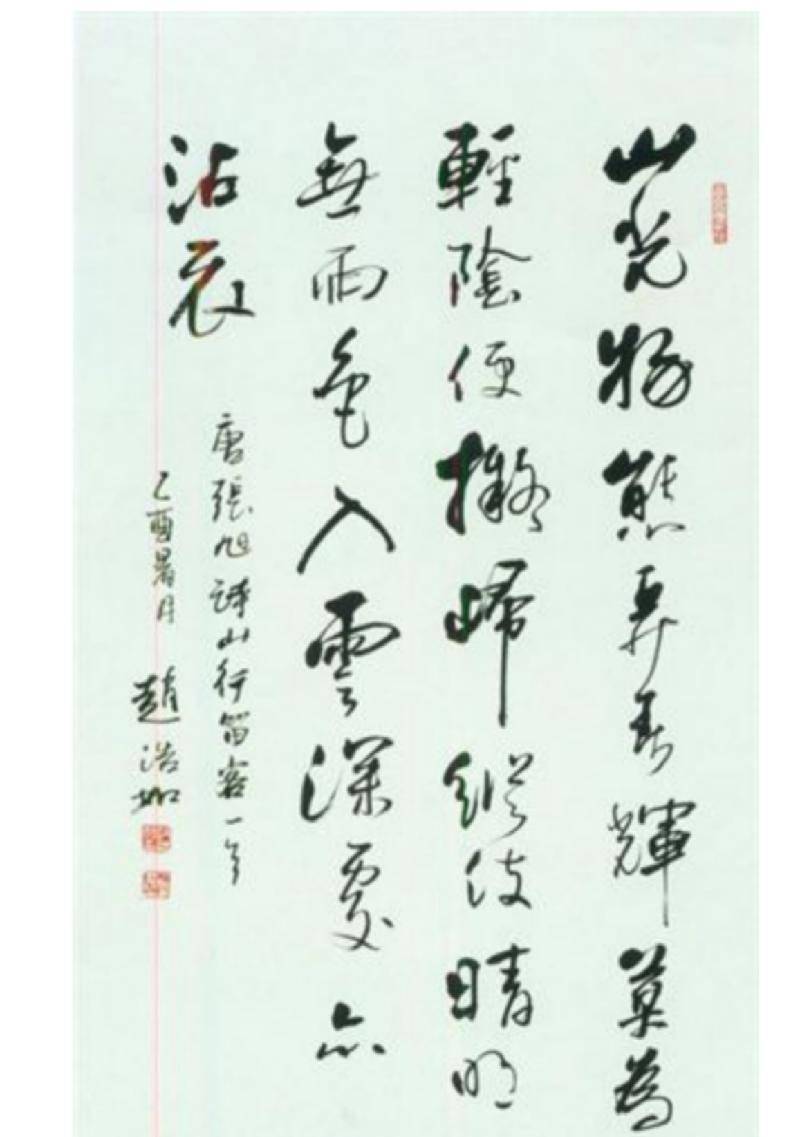 山光物態弄春輝莫為
輕陰便擬歸縱使晴明
無雨色入雲深處亦
沾衣
唐張旭詩山行留客一首
乙酉暑月 趙浩如